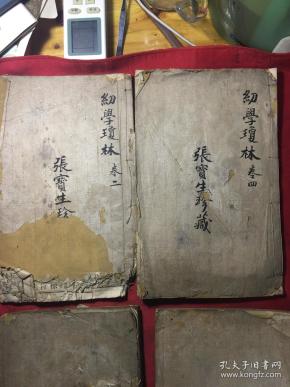 幼學瓊林 卷二
張寶生珍
幼學瓊林 卷四
張寶生珍藏
孔夫子旧书网
www.kongfz.com